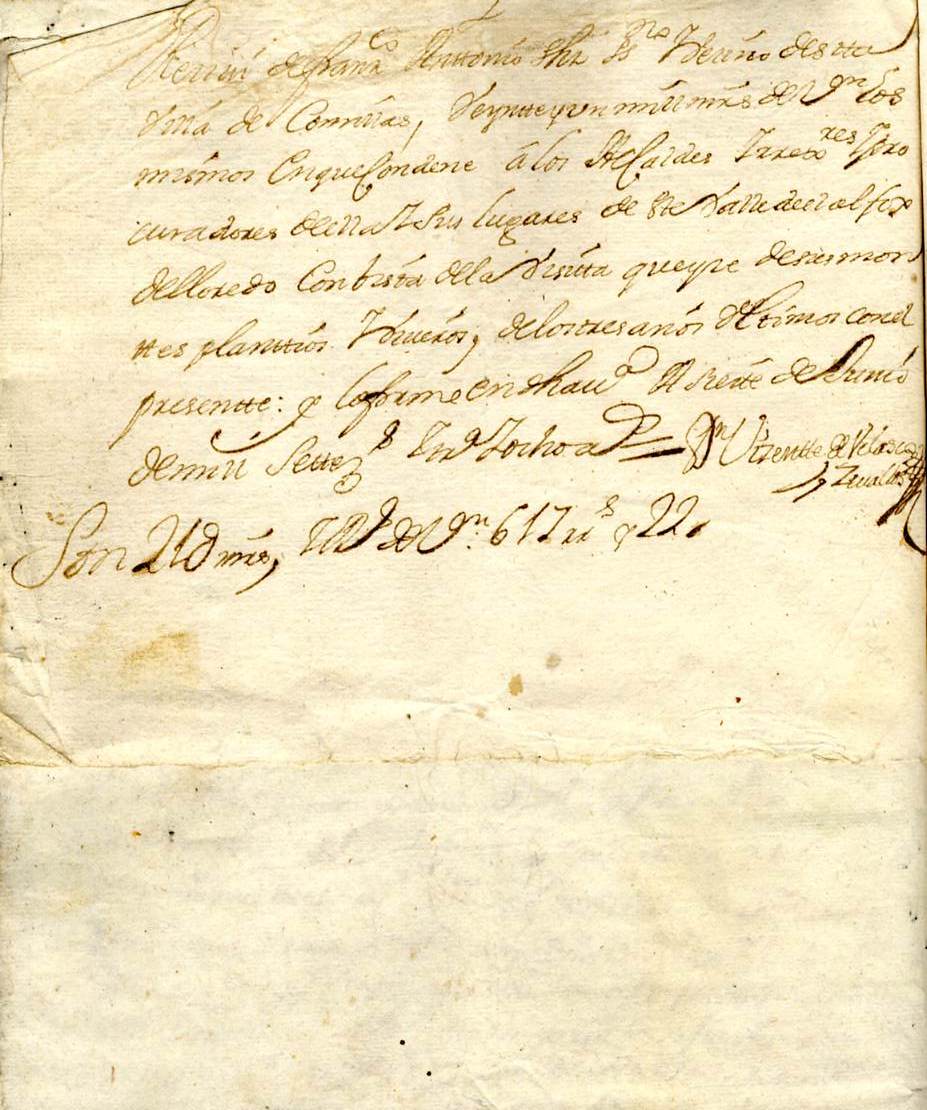 Reciui de franco Anttonio frz ssno Vecino desta
Villa de Comillas, Veyntte y un mill mrs de Vn los
mismos En que Condene a los Alcaldes Y rexres Y pro
curadores de ella Y sus lugares de este Valle de al foz
de lloredo Con bista de la Visita que yze de sus mon
ttes planttios Y biueros, de los tres años Vltimos con el
presentte: y lo firme en dha va A siette de Junio
de mill settezs Y ocho as Dn Vizentte de Velasco
y Zeuallos
Son 21U mrs, de Vn 617 rs y 22